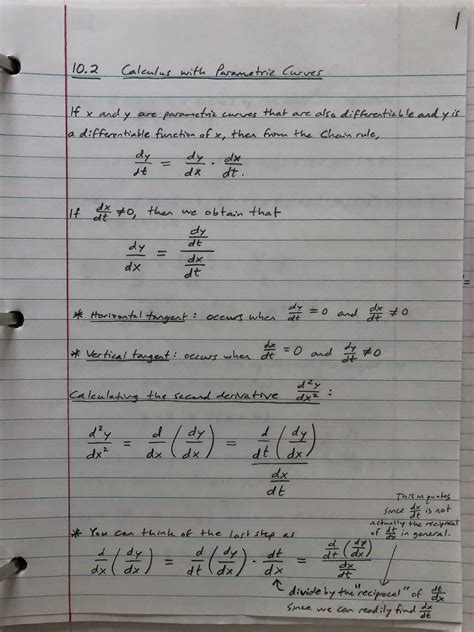 1
10.2 Calculus with Parametric Curves
If x and y are parametric curves that are also differentiable and y is
a differentiable function of x, then from the Chain rule,
dy/dt = dy/dx · dx/dt.
If dx/dt ≠ 0, then we obtain that
dy/dx = (dy/dt)/(dx/dt)
* Horizontal tangent: occurs when dy/dt = 0 and dx/dt ≠ 0
* Vertical tangent: occurs when dx/dt = 0 and dy/dt ≠ 0
Calculating the second derivative d²y/dx² :
d²y/dx² = d/dx (dy/dx) = (d/dt (dy/dx))/(dx/dt)
This in quotes
since dx/dt is not
actually the reciprocal
of dt/dx in general.
* You can think of the last step as
d/dx (dy/dx) = d/dt (dy/dx) · dt/dx = (d/dt (dy/dx))/(dx/dt)
↑ divide by the "reciprocal" of dt/dx
since we can readily find dx/dt